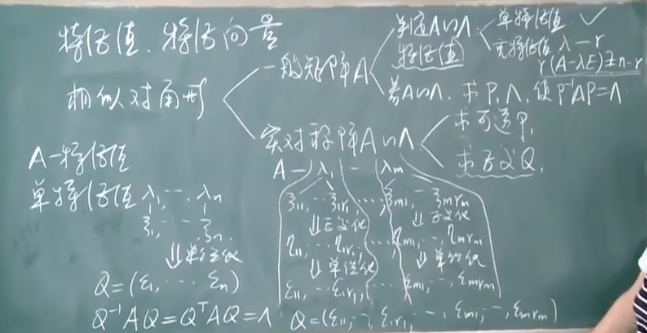 特征值、特征向量
相似对角形
一般矩阵A
判定A∽Λ
特征值
单特征值 ✓
重特征值 λ-r
r(A-λE)=n-r
若A∽Λ, 求P,Λ, 使P⁻¹AP=Λ
实对称阵A∽Λ
求可逆P,
求正交Q,
A-特征值
单特征值 λ₁ ⋯ λₙ
ξ₁, ⋯ ξₙ
⇓单位化
Q=(ε₁, ⋯ εₙ)
Q⁻¹AQ=QᵀAQ=Λ
A - λ₁ - λₘ
ξ₁₁, ⋯ ξ₁r₁, ⋯; ξₘ₁, ⋯ ξₘrₘ
⇓正交化 ⇓正交化
η₁₁, ⋯ η₁r₁, ⋯ ηₘ₁, ⋯ ηₘrₘ
⇓单位化 ⇓单位化
ε₁₁, ⋯ ε₁r₁, ⋯ εₘ₁, ⋯ εₘrₘ
Q=(ε₁₁, -, ε₁r₁, ⋯, εₘ₁, -, εₘrₘ)